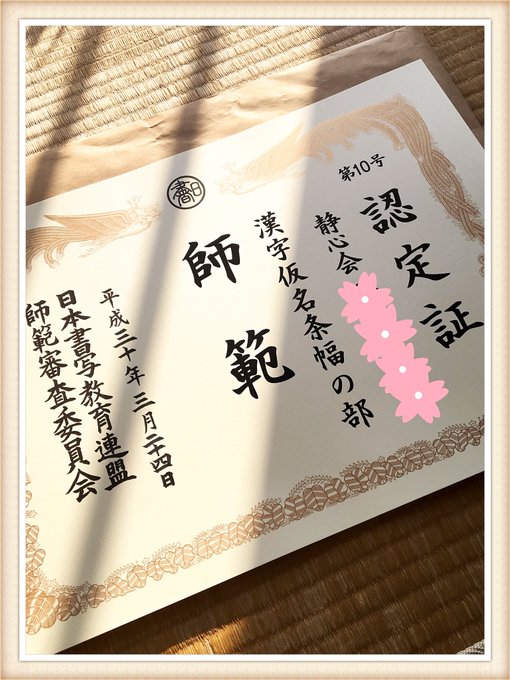 第10号
認定証
静心会
漢字仮名条幅の部
師範
平成三十年三月二十四日
日本書写教育連盟
師範審査委員会